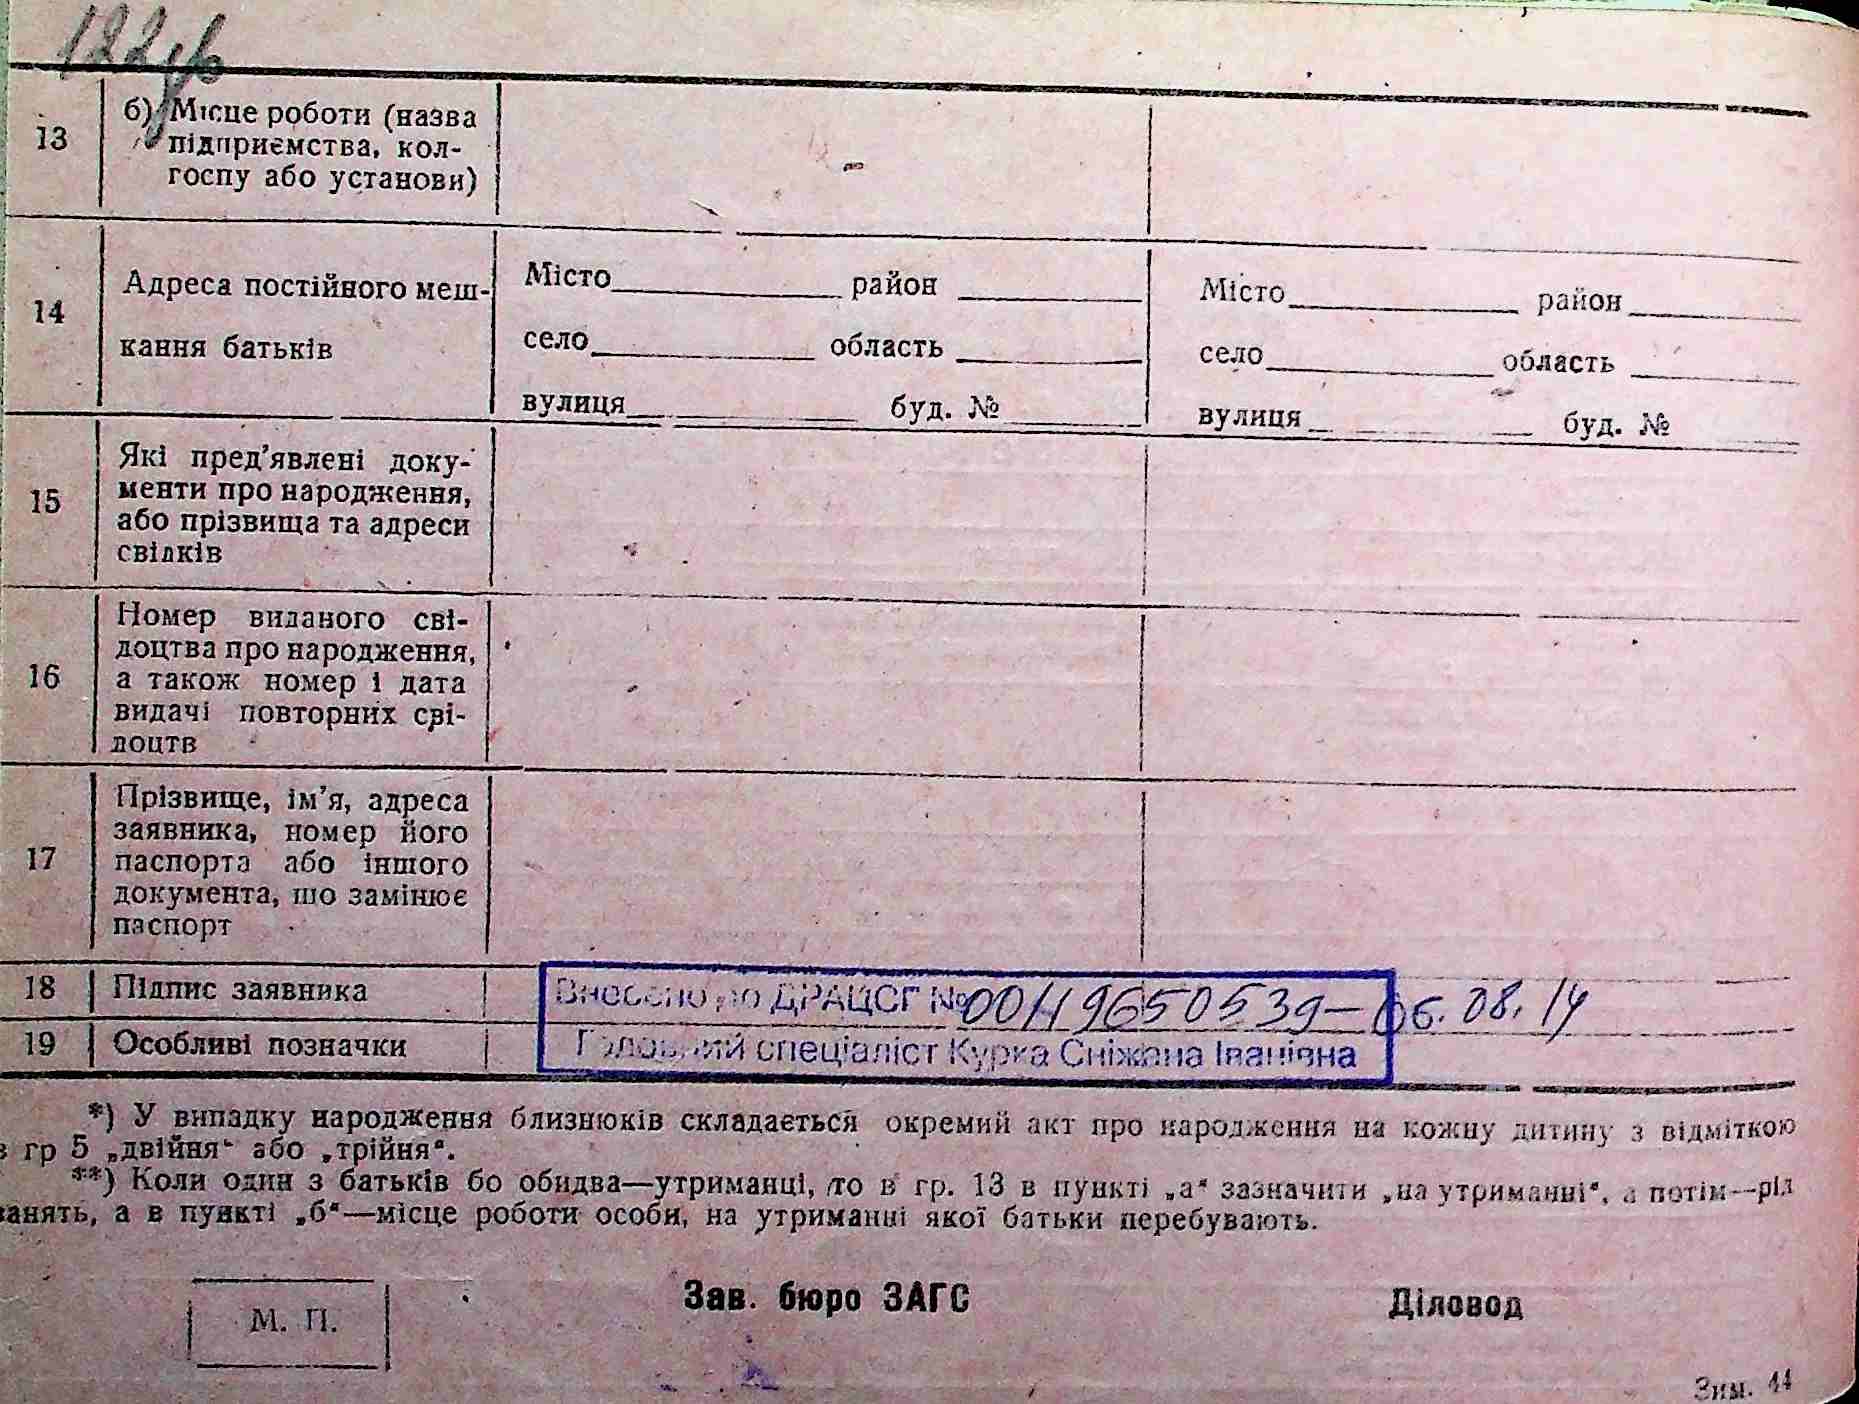 122
13
б) Місце роботи (назва
підприємства, кол-
госпу або установи)
14
Адреса постійного меш-
кання батьків
Місто район
село область
вулиця буд. №
Місто район
село область
вулиця буд. №
15
Які пред’явлені доку-
менти про народження,
або прізвища та адреси
свідків
16
Номер виданого сві-
доцтва про народження,
а також номер і дата
видачі повторних сві-
доцтв
17
Прізвище, ім’я, адреса
заявника, номер його
паспорта або іншого
документа, що замінює
паспорт
18 Підпис заявника
Внесено до ДРАЦСГ № 00119650539 — 06.08.14
19 Особливі позначки
Головний спеціаліст Курка Сніжана Іванівна
*) У випадку народження близнюків складається окремий акт про народження на кожну дитину з відміткою
в гр 5 „двійня“ або „трійня“.
**) Коли один з батьків бо обидва—утриманці, то в гр. 13 в пункті „а“ зазначити „на утриманні“, а потім—рід
занять, а в пункті „б“—місце роботи особи, на утриманні якої батьки перебувають.
М. П.
Зав. бюро ЗАГС
Діловод
Зим. 44